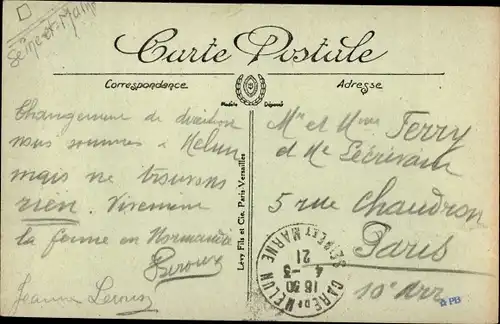 Seine-et-Marne
Carte Postale
Correspondance
Adresse
Modèle Déposé
Changement de direction
nous sommes à Melun
mais ne trouvons
rien. Vivement
la ferme en Normandie
Leroux
Jeanne Leroux
Lévy Fils et Cie, Paris-Versailles
Mr et Mme Ferry
et Me Lécrivain
5 rue Chaudron
Paris
10e arr
GARE DE MELUN
SEINE ET MARNE
16 30
4 - 3
21
PB